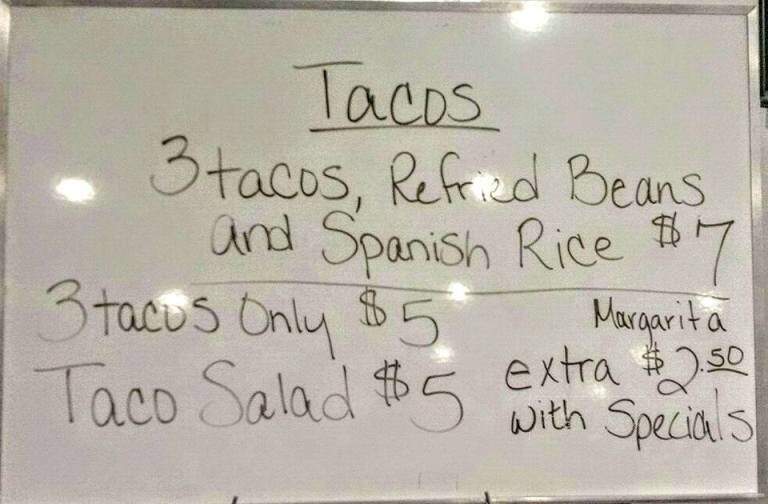 Tacos
3 tacos, Refried Beans
and Spanish Rice $7
3 tacos Only $5
Taco Salad $5
Margarita
extra $2.50
with Specials